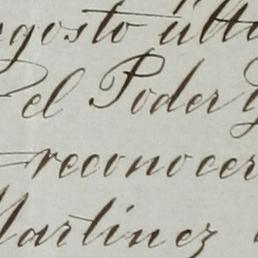 agosto últi
el Poder
reconocer
Martinez